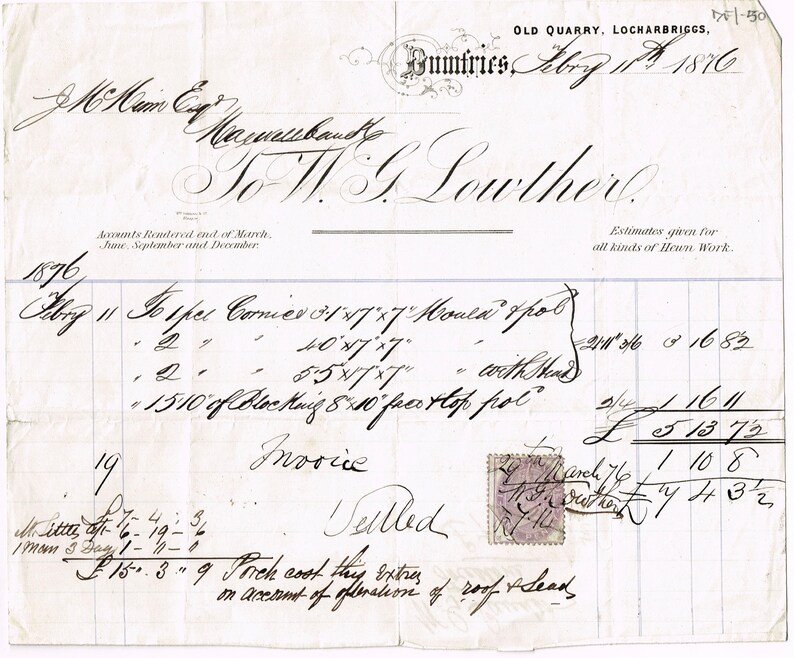 OLD QUARRY, LOCHARBRIGGS,
Dumfries, Febry 11th 1876
J McKinn Esqr
Maxwellbank
To W. G. Lowther.
Accounts Rendered end of March,
June, September and December.
Estimates given for
all kinds of Hewn Work.
1876
Febry 11 To 1 pce Cornice 3·1"x7"x7" Mould & pol
" 2 " " 4·0"x7"x7" " 21·11" 3/6 3 16 8½
" 2 " " 5·5"x7"x7" " with
" 15·10" of Blocking 8"x10" face & top pol 2/4 1 16 11
£ 5 13 7½
19 Invoice 1 10 8
29th March 76
W. G. Lowther £ 7 4 3½
Settled
£ 7 - 4 : 3
6 - 19 - 6
1 Man 3 Day 1 - 0 - 0
£ 15 " 3 " 9 Porch cost this Extra
on account of alteration of roof & Lead